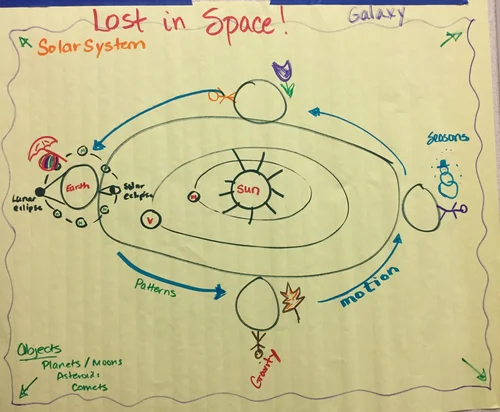 Lost in Space!
Galaxy
Solar System
Seasons
Earth
Lunar
eclipse
Solar
eclipse
Sun
M
V
Patterns
motion
Gravity
Objects
Planets / Moons
Asteroids
Comets